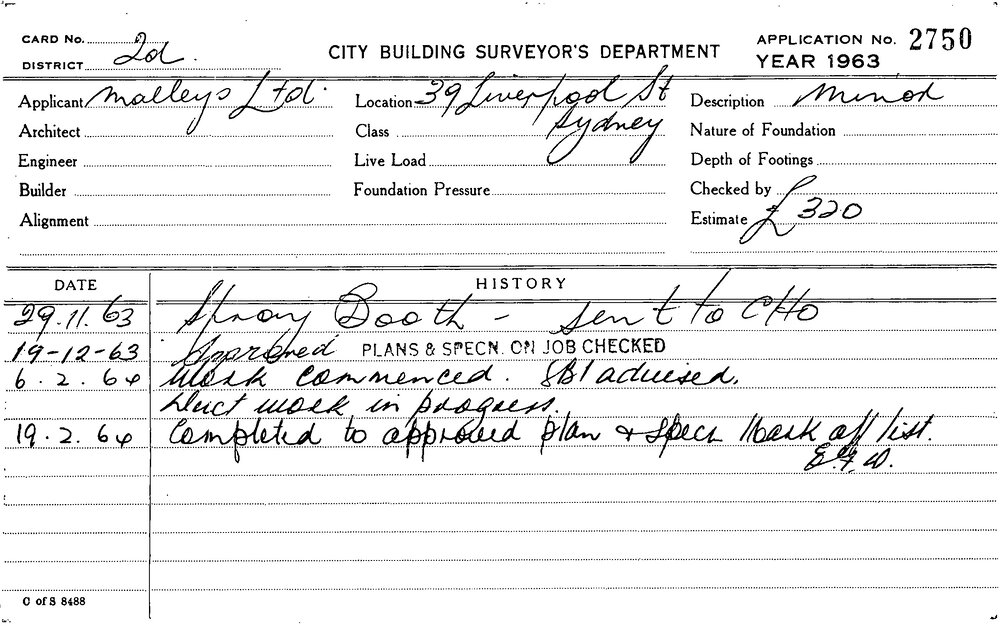 CARD No.
DISTRICT 2d
CITY BUILDING SURVEYOR'S DEPARTMENT
APPLICATION No. 2750
YEAR 1963
Applicant Malleys Ltd.
Location 39 Liverpool St
Sydney
Description Minor
Architect
Class
Nature of Foundation
Engineer
Live Load
Depth of Footings
Builder
Foundation Pressure
Checked by
Alignment
Estimate £320
DATE HISTORY
29.11.63 Spray Booth - sent to CHO
19-12-63 Approved PLANS & SPECN. ON JOB CHECKED
6.2.64 Work commenced. SBI advised.
Duct work in progress.
19.2.64 Completed to approved plan & specn Mark off list.
C of S 8488